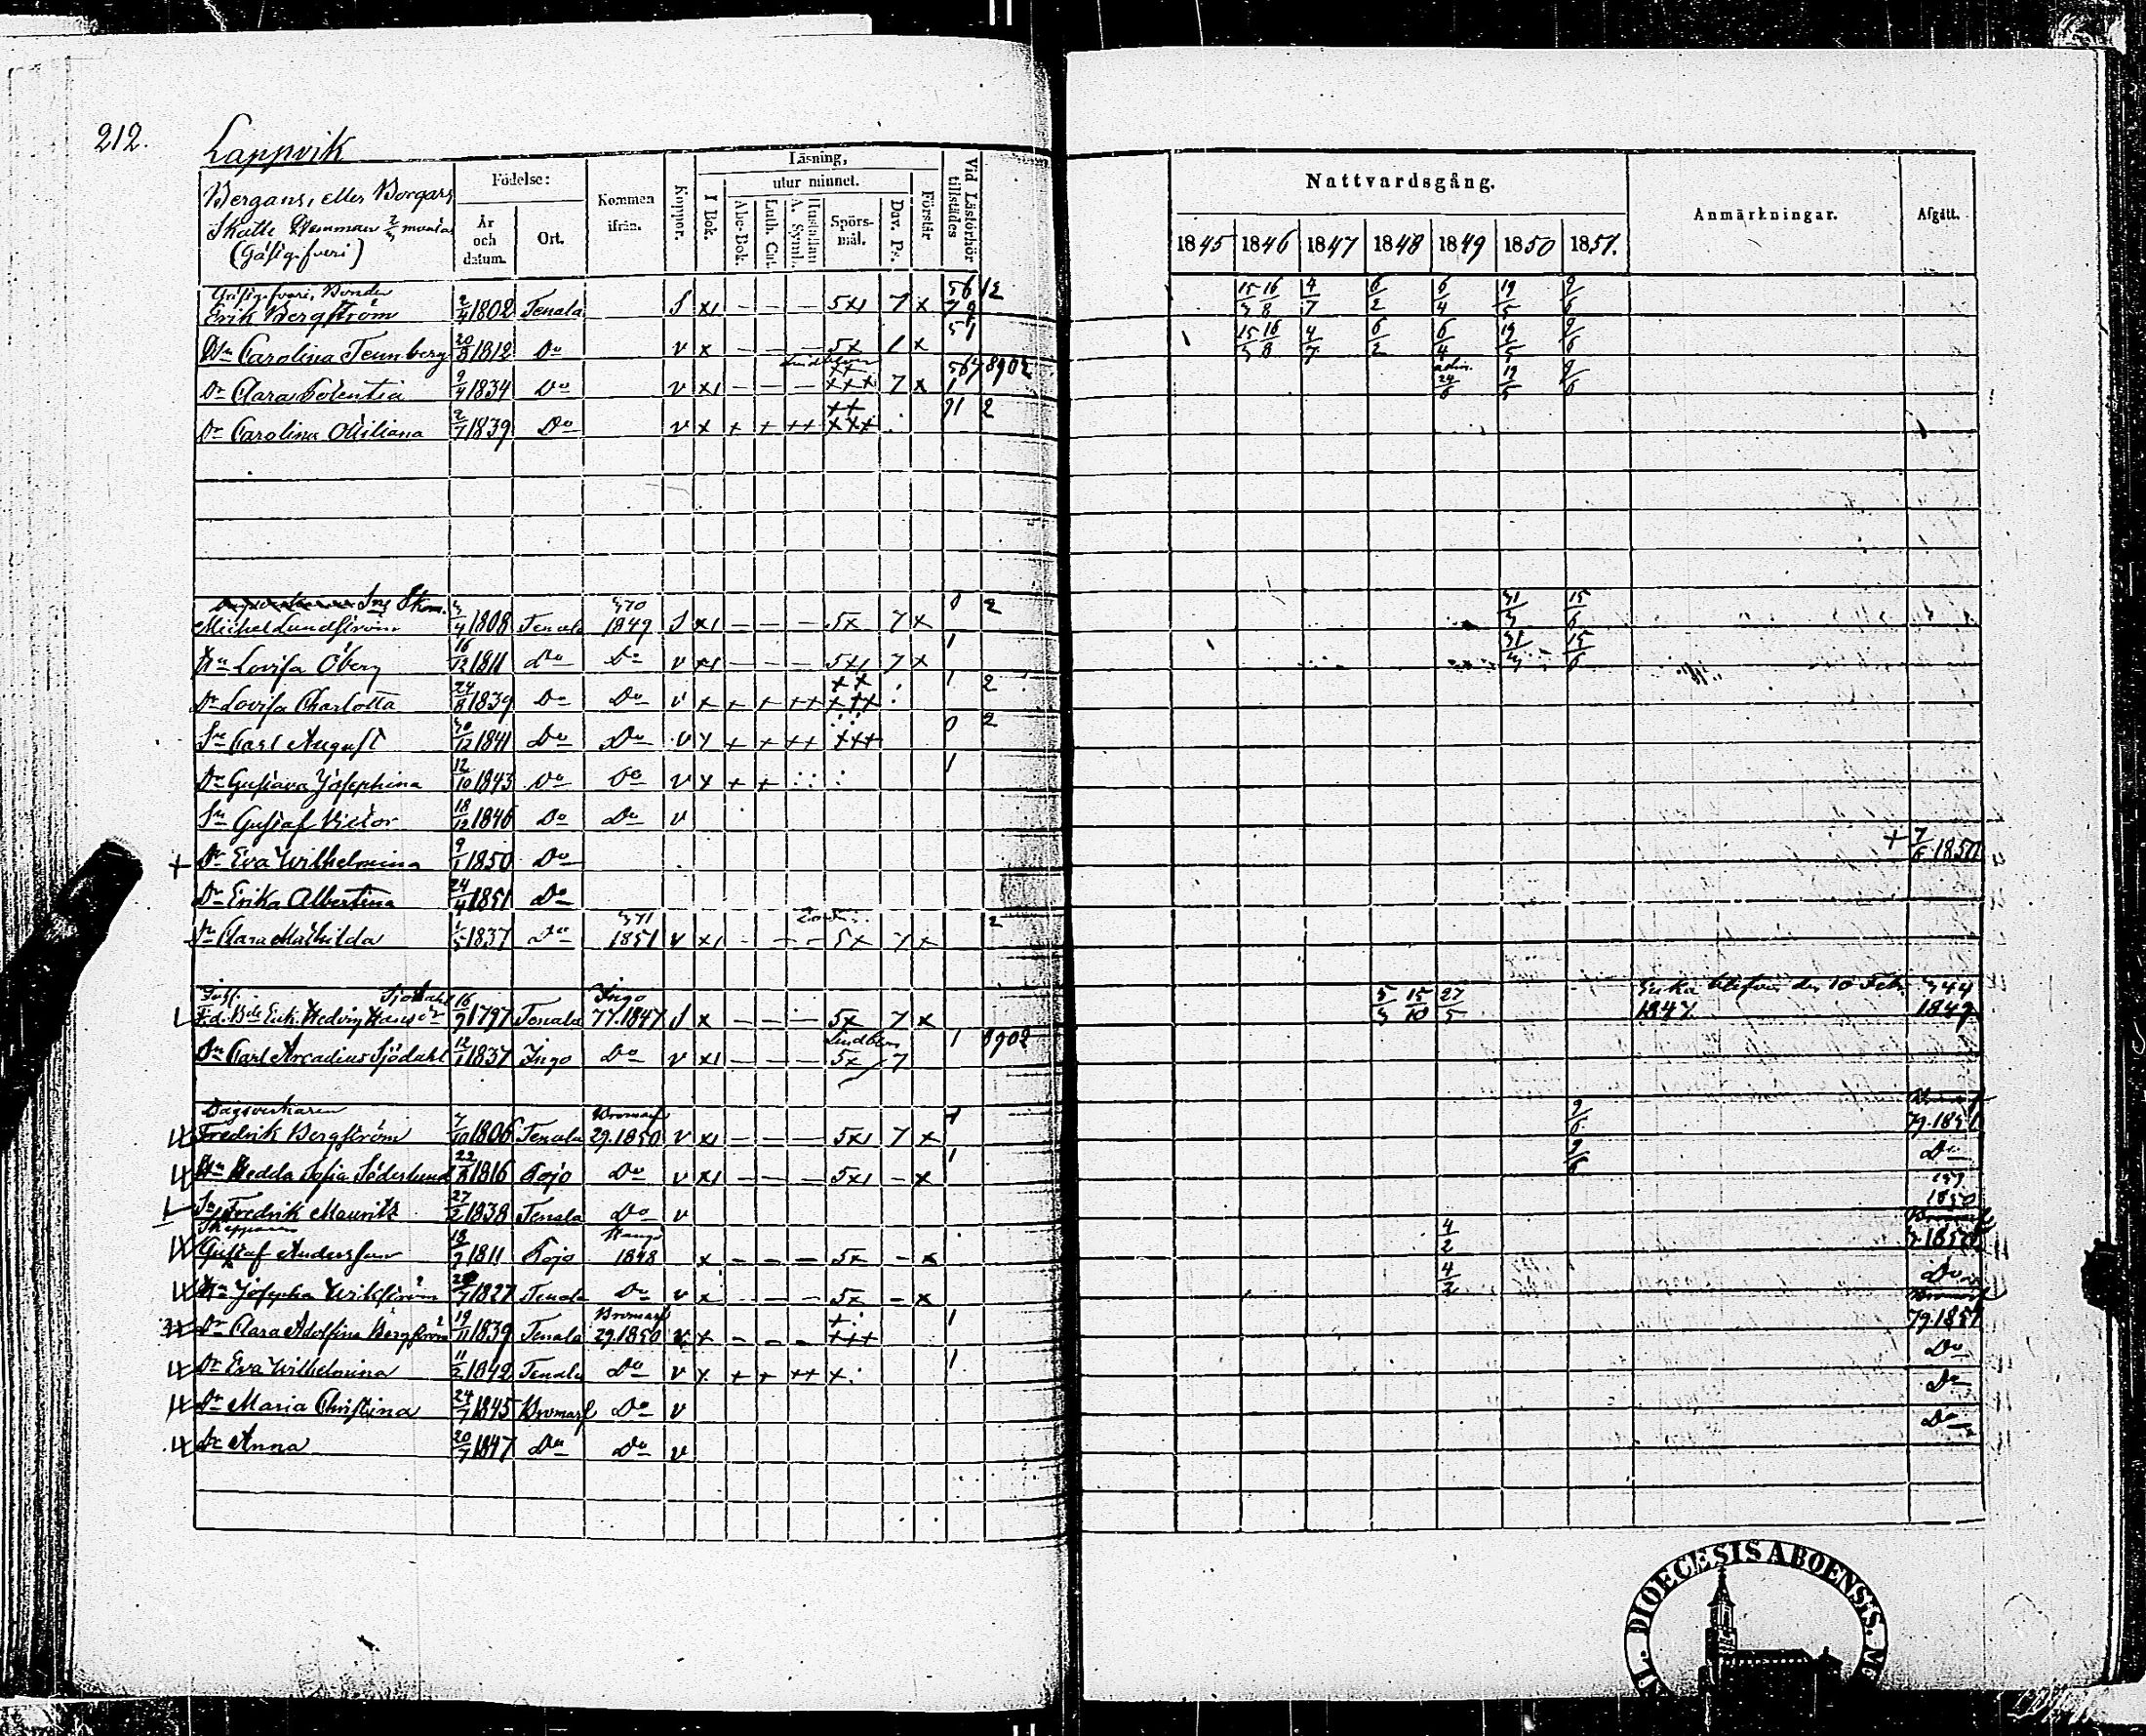 212.
Lappvik
Bergans, eller Borgars
Skatte Hemman 2/3 mantal
(Gästgifveri)
Födelse:
År och datum.
Ort.
Kommen ifrån.
Koppor.
Läsning,
utur minnet.
I Bok.
Abc-Bok.
Luth. Cat.
Hustaflan A. Symb.
Spörsmål.
Dav. Ps.
Förstår
Vid Läsförhör tillstädes
Nattvardsgång.
1845 1846 1847 1848 1849 1850 1851.
Anmärkningar.
Afgått.
Gästgifvari, Bonden
Erik Bergström 2/4 1802 Tenala S x1 - - - 5x1 7 x 15/3 16/8 4/7 6/2 6/4 19/5 9/6
Hu Carolina Tennberg 20/8 1812 Do v x - - - 5x x 15/3 16/8 4/7 6/2 6/4 19/5 9/6
Dr Clara 9/4 1834 Do v x1 - - - xxx 7 x adm. 24/6 19/5 9/6
Dr Carolina Miliana 2/7 1839 Do v x + + ++ xxx 71 2
Michel Lundström 1808 Tenala 370 1849 S x1 - - - 5x 7 x 0 2 31/3 15/6
Hu Lovisa Öberg 16/12 1811 Do Do v x1 - - - 5x1 7 x 1 31/3 15/6
Dr Lovisa Charlotta 24/8 1839 Do Do v x + + ++ 1 2
Sn Carl August 30/12 1841 Do Do v x + + ++ +++ 0 2
Dr Gustava Josephina 12/10 1843 Do Do v x + + 1
Sn Gustaf Victor 18/12 1846 Do Do v
+ Dr Eva Wilhelmina 9/1 1850 Do + 7/6 1850
Dr Erika Albertina 24/4 1851 Do
Clara Mathilda 1837 Do 371 1851 v x1 - - - 5x 7 x 2
Sjödahl
Enk. Hedvig 16/9 1797 Tenala Ingo 77.1847 S x - - - 5x 7 x 5/3 15/10 27/5 Enka blefven den 10 Feb. 1847. 344 1849
Sn Carl Arcadius Sjödahl 12/1 1837 Ingo Do v x1 - - - Lindblom 5x 7 1 8902
Dagsverkaren
Fredrik Bergström 7/10 1806 Tenala Bromarf 29.1850 v x1 - - - 5x1 7 x 1 9/6 79.1851
Hu Hedda Sofia Söderlund 22/8 1816 Pojo Do v x1 - - - 5x1 - x 1 9/6 Do
Sn Fredrik Mauritz 27/2 1838 Tenala Do v 1850
Skepparen
Gustaf Andersson 18/9 1811 Pojo Hangö 1848 x - - - 5x - x 4/2 Bromarf 3.1850
Hu Josepha Wikström 1827 Tenala Do v x - - - 5x - x 4/2 Do
Dr Clara Adolfina Bergström 19/11 1839 Tenala Bromarf 29.1850 v x - - - +++ 1 Bromarf 79.1851
Dr Eva Wilhelmina 11/2 1842 Tenala Do v x + + ++ x 1 Do
Dr Maria Christina 24/7 1845 Bromarf Do v Do
Dr Anna 20/7 1847 Do Do v Do
DIOECESIS ABOENSIS.